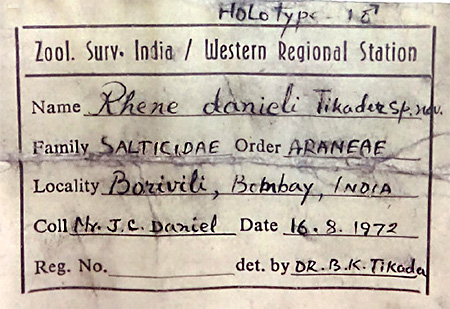 Holotype - 1♂
Zool. Surv. India / Western Regional Station
Name Rhene danieli Tikader sp. nov.
Family SALTICIDAE Order ARANEAE
Locality Borivili, Bombay, INDIA
Coll Mr. J.C. Daniel Date 16.8.1972
Reg. No. det. by DR. B.K. Tikada